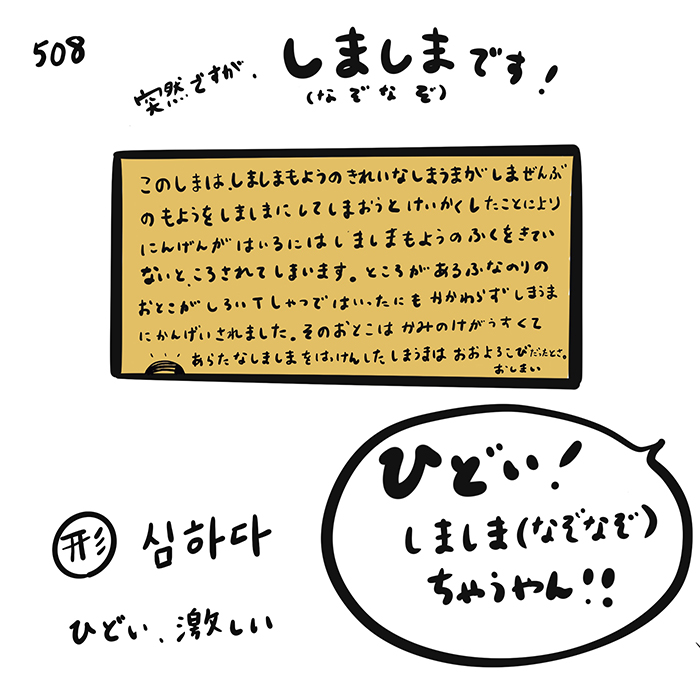 508
突然ですが、しましまです!
(なぞなぞ)
このしまは、しましまもようのきれいなしまうまがしまぜんぶ
のもようをしましまにしてしまおうとけいかくしたことにより
にんげんがはいるにはしましまもようのふくをきてい
ないと、ころされてしまいます。ところがあるふなのりの
おとこがしろいTしゃつではいったにもかかわらずしまうま
にかんげいされました。そのおとこはかみのけがうすくて
あらたなしましまをはっけんしたしまうまはおおよろこびだったとさ。
おしまい
ひどい!
しましま(なぞなぞ)
ちゃうやん!!
形 심하다
ひどい、激しい